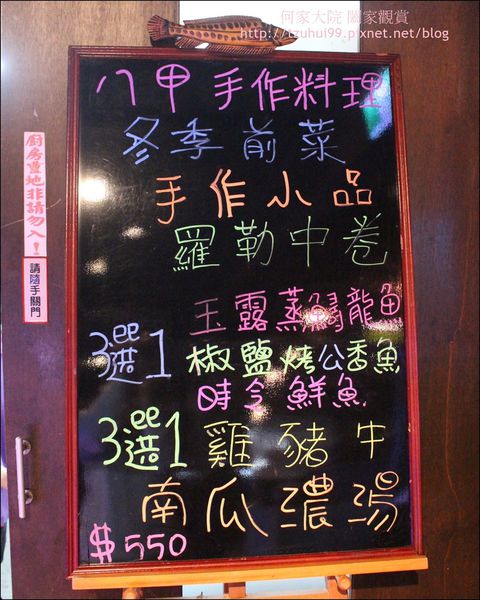 何家大院 闔家觀賞
http://tzuhui99.pixnet.net/blog
八甲手作料理
冬季前菜
手作小品
羅勒中卷
玉露蒸鱘龍魚
3選1 椒鹽烤公香魚
時令鮮魚
3選1 雞豬牛
南瓜濃湯
$550
廚房重地非請勿入!
請隨手關門